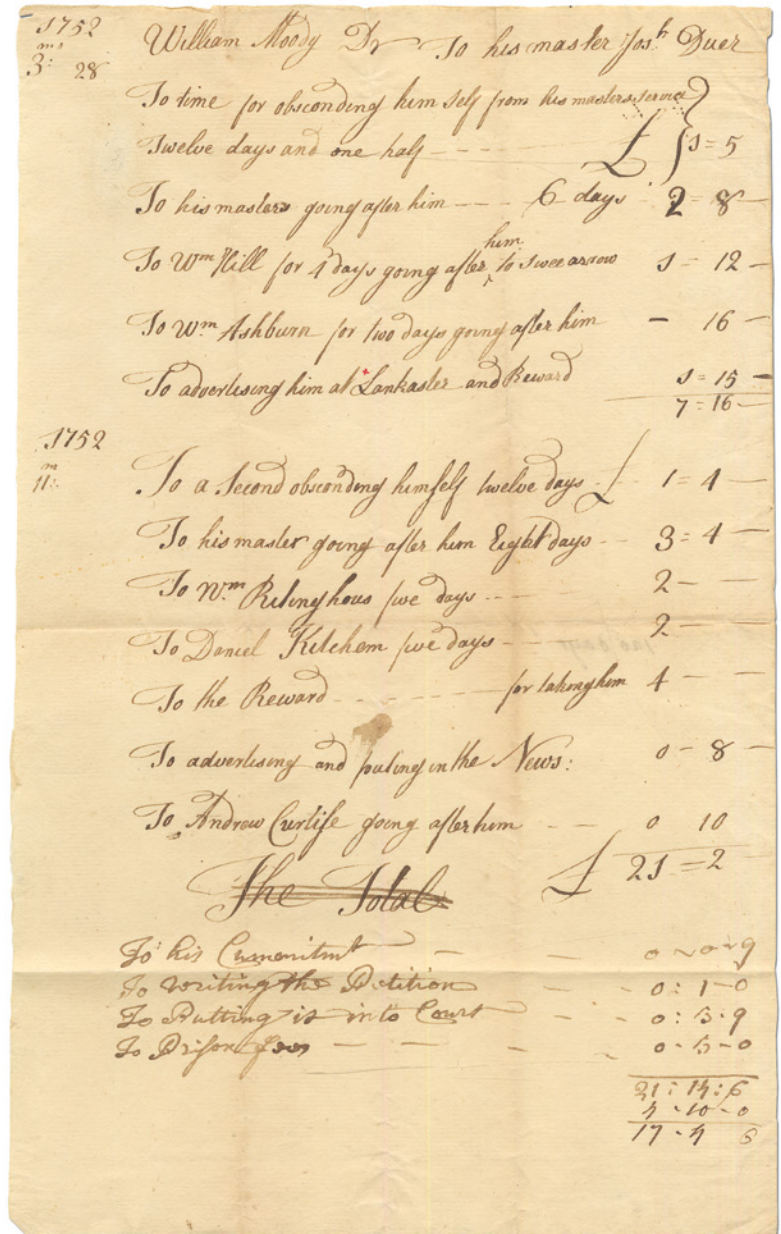 1752
ms
3: 28
William Moody Dr To his master Josh Duer
To time for obsconding him self from his masters service
Twelve days and one half - - - - £ 1=5
To his masters going after him - - - 6 days 2=8-
To Wm Hill for 4 days going after him to Swee arrow 1=12-
To Wm Ashburn for two days going after him - 16-
To advertising him at Lankaster and Reward 1=15-
7=16-
1752
m
11:
To a Second obsconding himself twelve days - £ 1=4-
To his master going after him Eight days - - 3=4-
To Wm Ritinghous five days - - - 2- -
To Daniel Kitchem five days - - - 2- -
To the Reward - - - - - for taking him 4- -
To advertising and puting in the News: 0-8-
To Andrew Curlise going after him - - 0 10
The Total £ 21=2
To his Commitmt - - 0-0-9
To writing the Petition - - 0:1-0
To Putting is into Court - - - 0:5-9
To Prison fees - - - - - 0-5-0
21:14:6
4-10-0
17-4 6